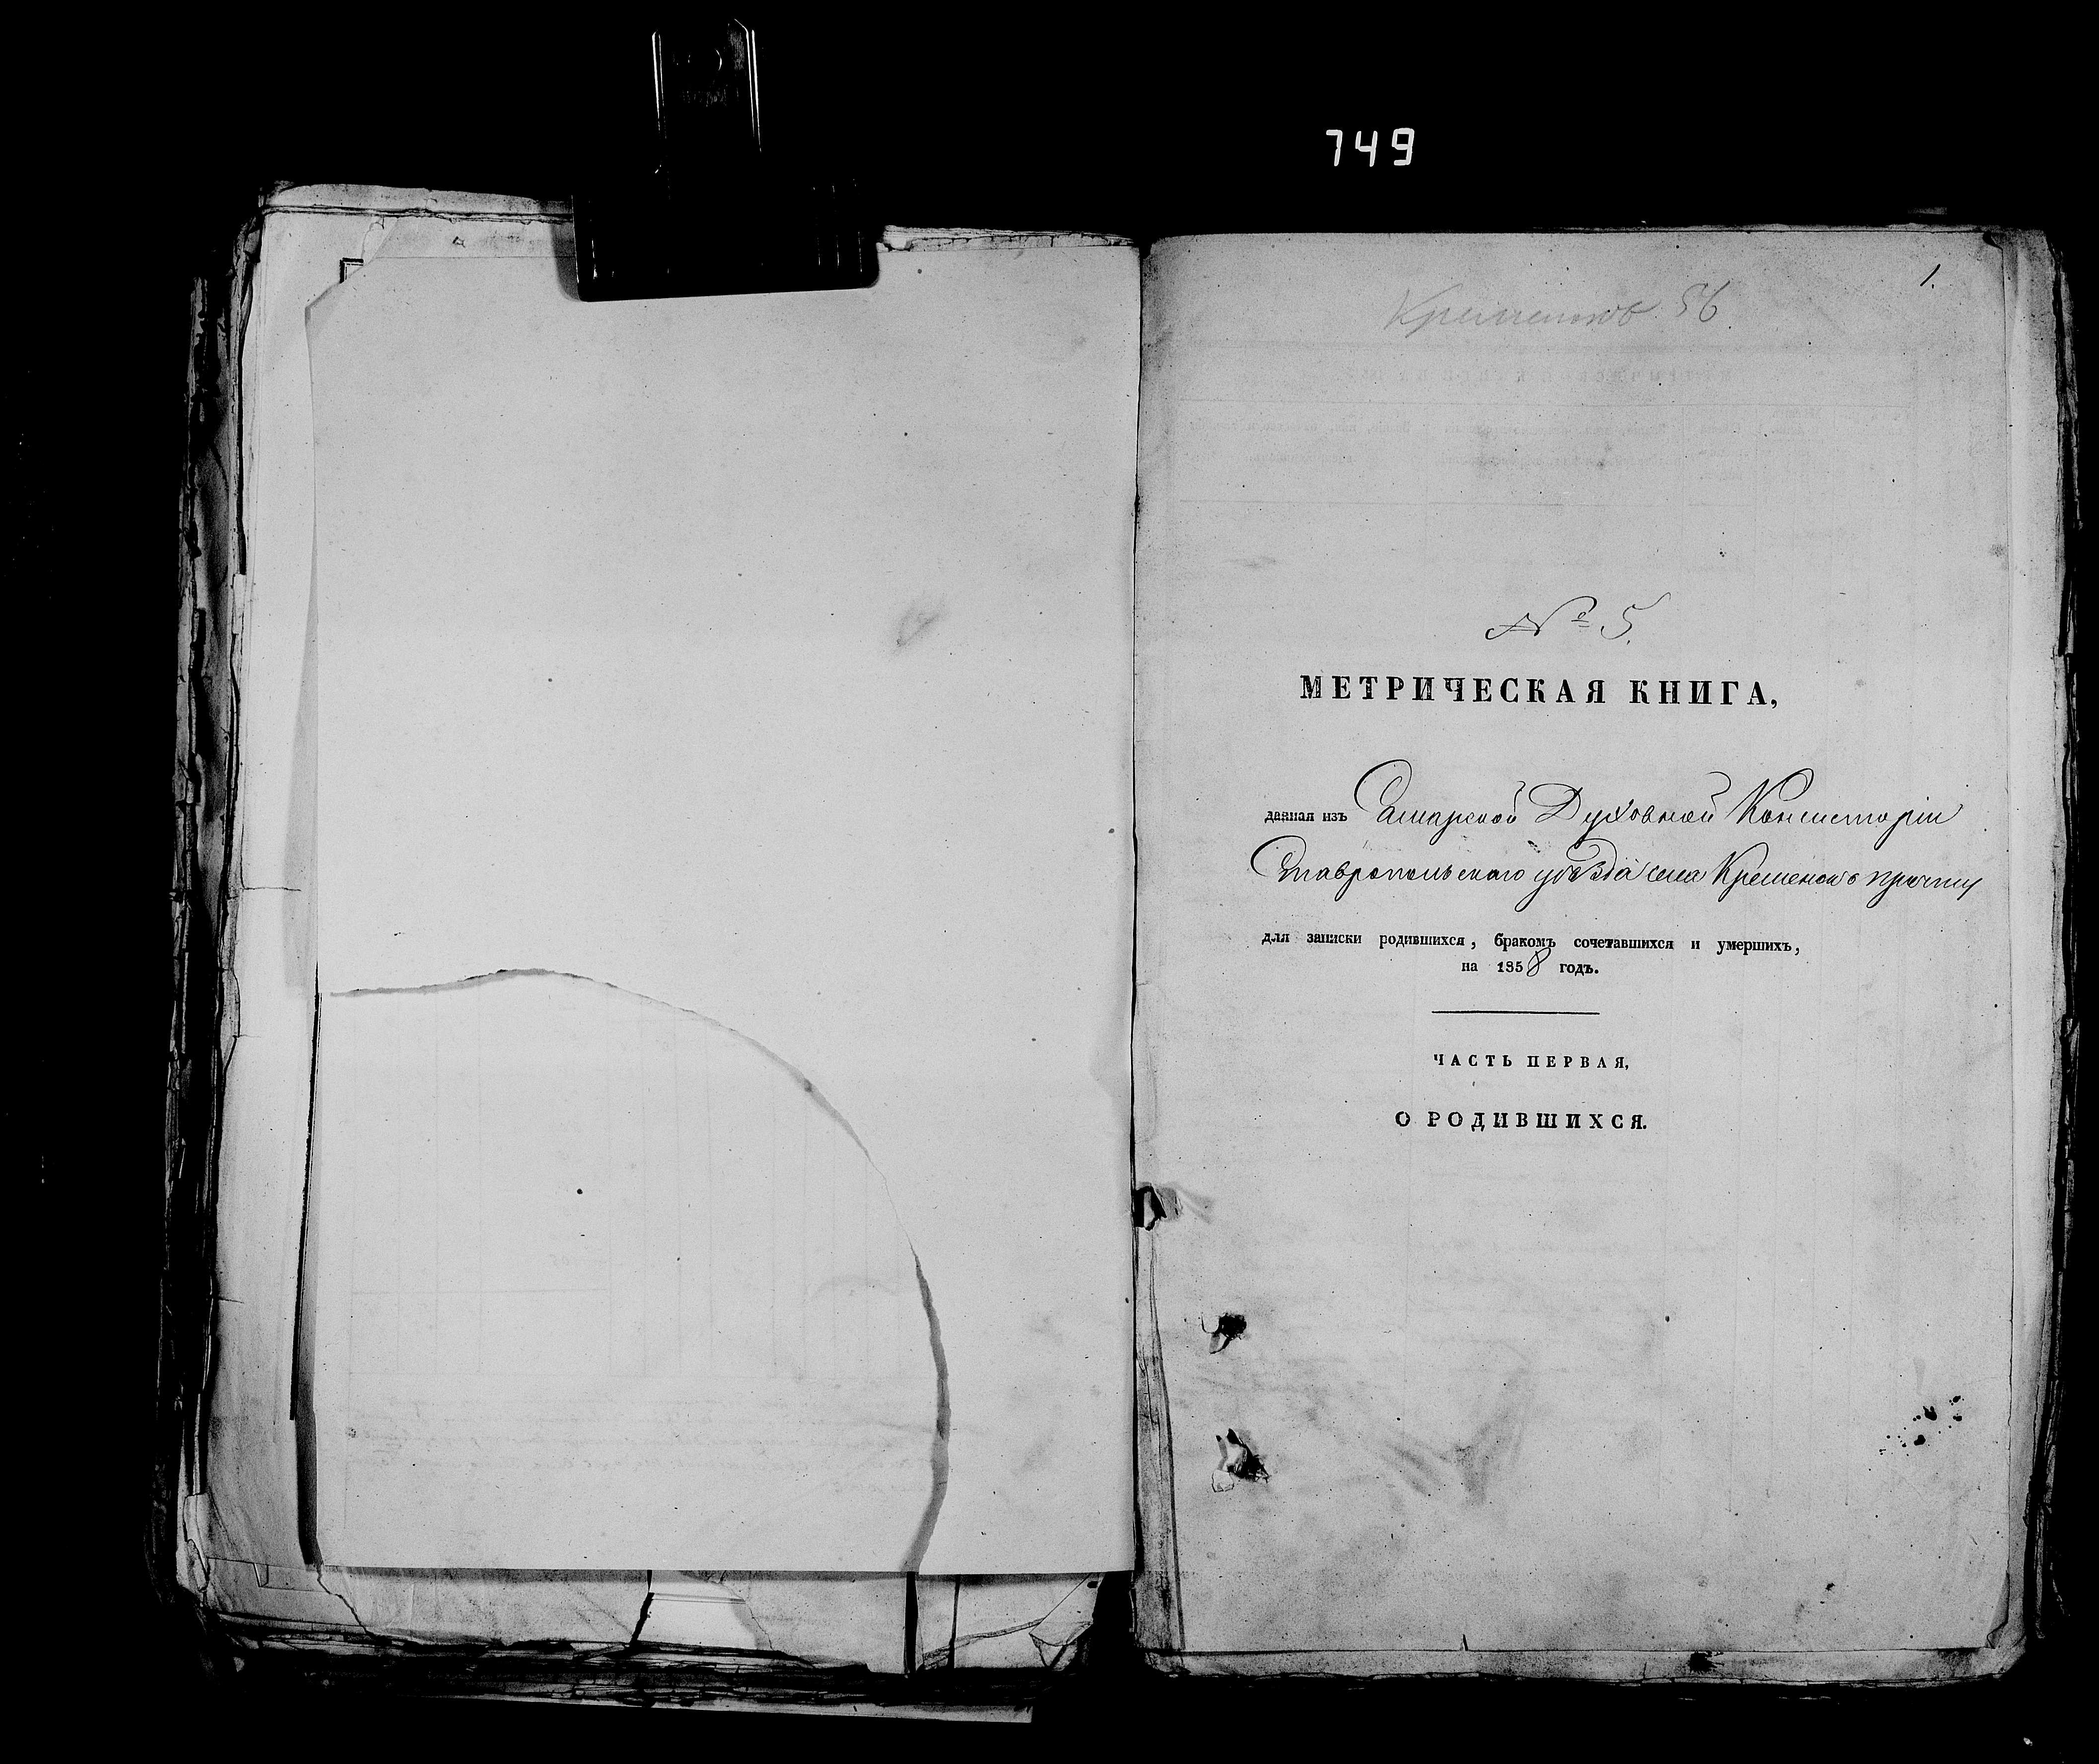 749
1.
Кременков. 56
№ 5.
МЕТРИЧЕСКАЯ КНИГА,
данная изъ Самарской Духовной Консисторіи
Ставропольскаго уѣзда села Кременокъ причту
для записки родившихся, бракомъ сочетавшихся и умершихъ,
на 1858 годъ.
ЧАСТЬ ПЕРВАЯ,
О РОДИВШИХСЯ.